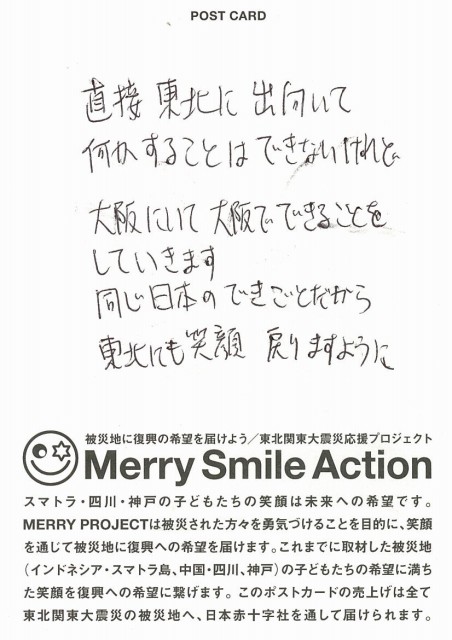 POST CARD
直接 東北に 出向いて
何かすることはできないけれど
大阪にいて 大阪でできることを
していきます
同じ日本のできごとだから
東北にも笑顔 戻りますように
被災地に復興の希望を届けよう／東北関東大震災応援プロジェクト
Merry Smile Action
スマトラ・四川・神戸の子どもたちの笑顔は未来への希望です。
MERRY PROJECTは被災された方々を勇気づけることを目的に、笑顔
を通じて被災地に復興への希望を届けます。これまでに取材した被災地
（インドネシア・スマトラ島、中国・四川、神戸）の子どもたちの希望に満ち
た笑顔を復興への希望に繋げます。このポストカードの売上げは全て
東北関東大震災の被災地へ、日本赤十字社を通して届けられます。